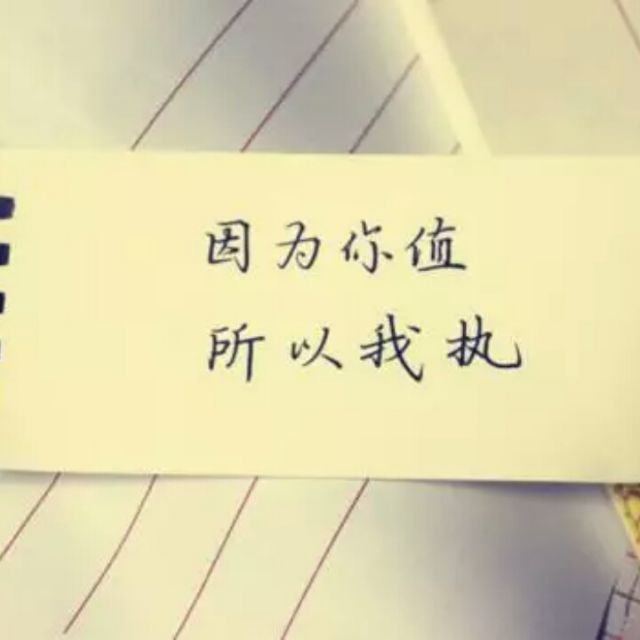 因为你值
所以我执